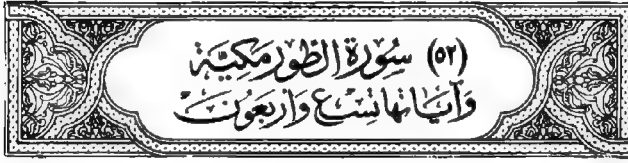 (٥٢) سُورَةُ الطُّورِ مَكِيَّة
وَآيَاتهَا تِسْعٌ وَأَرْبَعُونَ